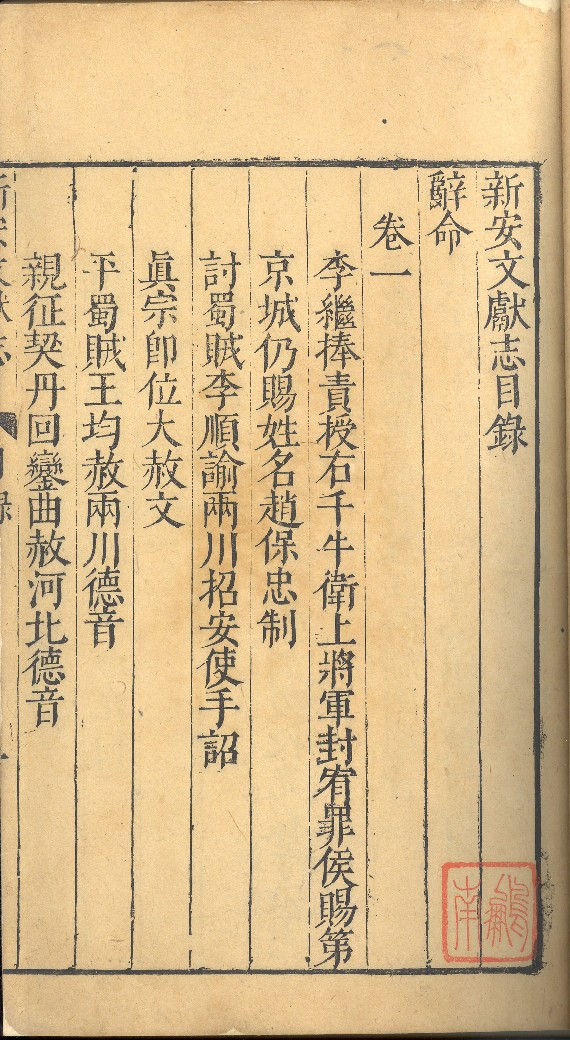 新安文獻志目錄
辭命
卷一
李繼捧責授右千牛衛上將軍封宥罪侯賜第
京城仍賜姓名趙保忠制
討蜀賊李順諭兩川招安使手詔
眞宗卽位大赦文
平蜀賊王均赦兩川德音
親征契丹回鑾曲赦河北德音